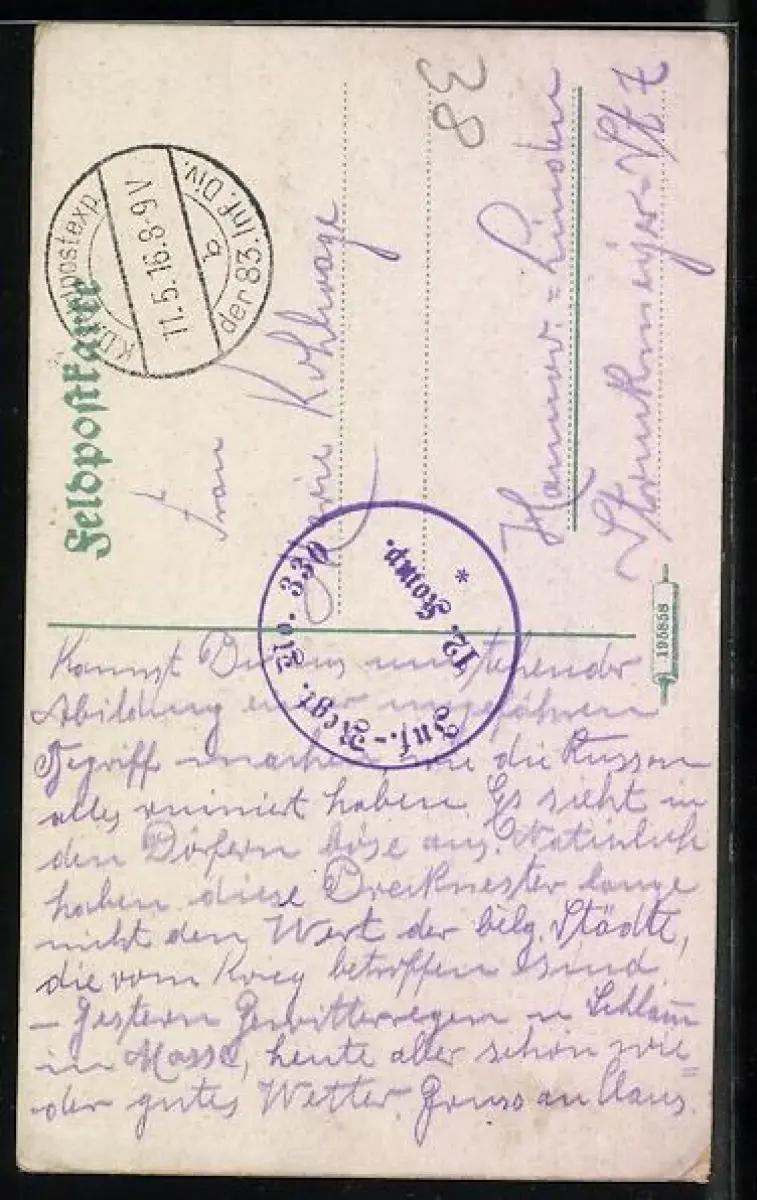 Feldpostkarte
K.D. Feldpostexp.
11.5.16.8-9V
b
der 83. Inf. Div.
38
Frau
Marie Kohlwage
Hannov. = Linden
Stärkmeijer-St 7
Inf.-Regt. No. 330
12. Komp.
*
195858
Kannst Dir aus umstehender
Abildung einen ungefähren
Begriff machen, wie die Russen
alles ruiniert haben. Es sieht in
den Dörfern böse aus. Natürlich
haben diese Drecknester lange
nicht den Wert der belg. Städte,
die vom Krieg betroffen sind.
– Gestern Gewitterregen u Schlam
in Masse, heute aber schon wie=
der gutes Wetter. Gruss an Claus.